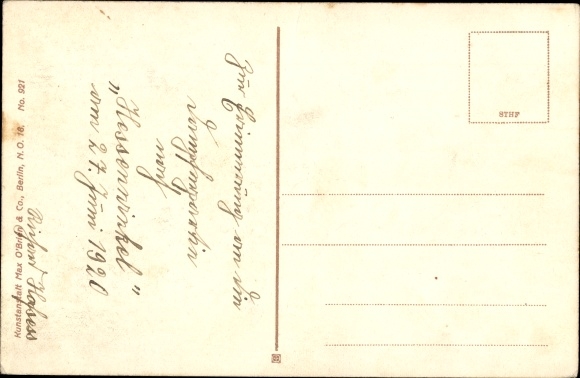 Zur Erinnerung an die
Dampferpartie
nach
„Hessenwinkel"
am 27. Juni 1920
Kunstanstalt Max O'Brien & Co., Berlin, N.O. 18. No. 921
STHF